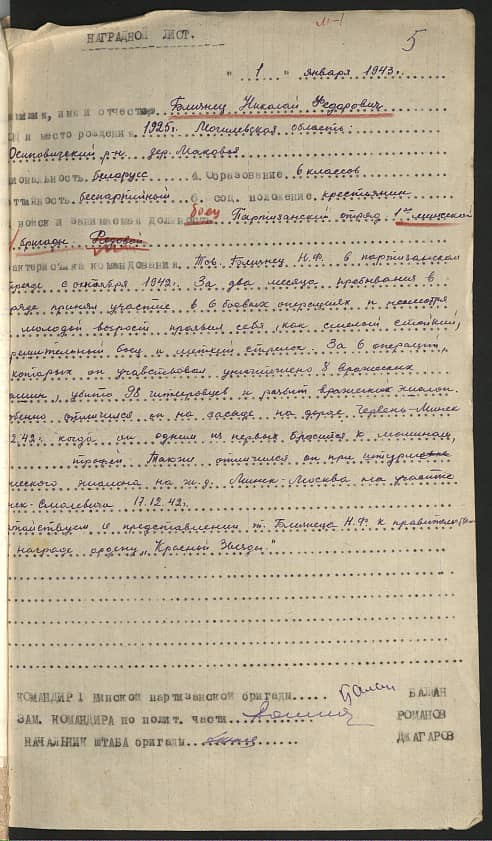 5
НАГРАДНОЙ ЛИСТ.
" 1 " января 1943 г.
имя и отчество Близнец Николай Федорович
и место рождения 1925 г. Могилевская область.
Осиповичский р-н дер. Маковье
иональность. белорусс 4. Образование. 6 классов
тийность беспартийный 6. соц. положение. крестьянин
войск и занимаемая должность боец Партизанский отряд 1ой минской
бригады
актеристика командования. Тов. Близнец Н.Ф. в партизанском
с октября 1942 г. За два месяца пребывания в
ряде принял участие в 6 боевых операциях и несмотря
молодой возраст проявил себя, как смелый стойкий,
решительный боец и меткий стрелок. За 6 операций,
которых он участвовал уничтожено 8 вражеских
машин, убито 98 гитлеровцев и разбит вражеский эшелон.
обенно отличился он на засаде на дороге Червень-Минск
2.42 г. когда он одним из первых бросился к машинам,
трофей Также отличился он при штурме
эшелона на ж.д. Минск-Москва на участке
нск-Смолевичи 17.12.42 г.
датайствуем о представлении т. Близнеца Н.Ф. к правительствен
награде ордену „Красной Звезды"
КОМАНДИР 1 Минской партизанской бригады..... Балан БАЛАН
ЗАМ. КОМАНДИРА по полит. части РОМАНОВ
НАЧАЛЬНИК ШТАБА бригады ДЖАГАРОВ